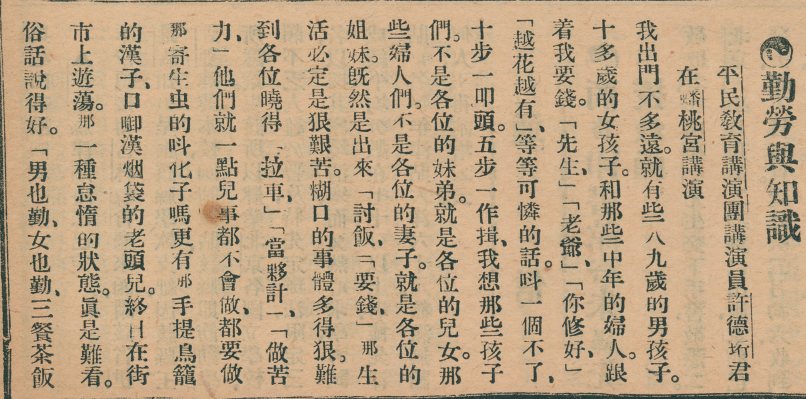 勤勞與知識
平民教育講演團講演員許德珩君
在蟠桃宮講演
我出門不多遠。就有些八九歲的男孩子。
十多歲的女孩子。和那些中年的婦人、跟
着我要錢。「先生」、「老爺」、「你修好」、
「越花越有」、等等可憐的話、呌一個不了、
十步一叩頭。五步一作揖、我想那些孩子
們。不是各位的妹弟。就是各位的兒女。那
些婦人們。不是各位的妻子。就是各位的
姐妹。旣然是出來「討飯」「要錢」、那生
活必定是狠艱苦。糊口的事體多得狠、難
到各位曉得「拉車」、「當夥計」、「做苦
力」、他們就一點兒事都不會做、都要做
那寄生虫的呌化子嗎更有那手提鳥籠
的漢子、口啣漢烟袋的老頭兒。終日在街
市上遊蕩。那一種怠惰的狀態。眞是難看。
俗話說得好。「男也勤、女也勤、三餐茶飯